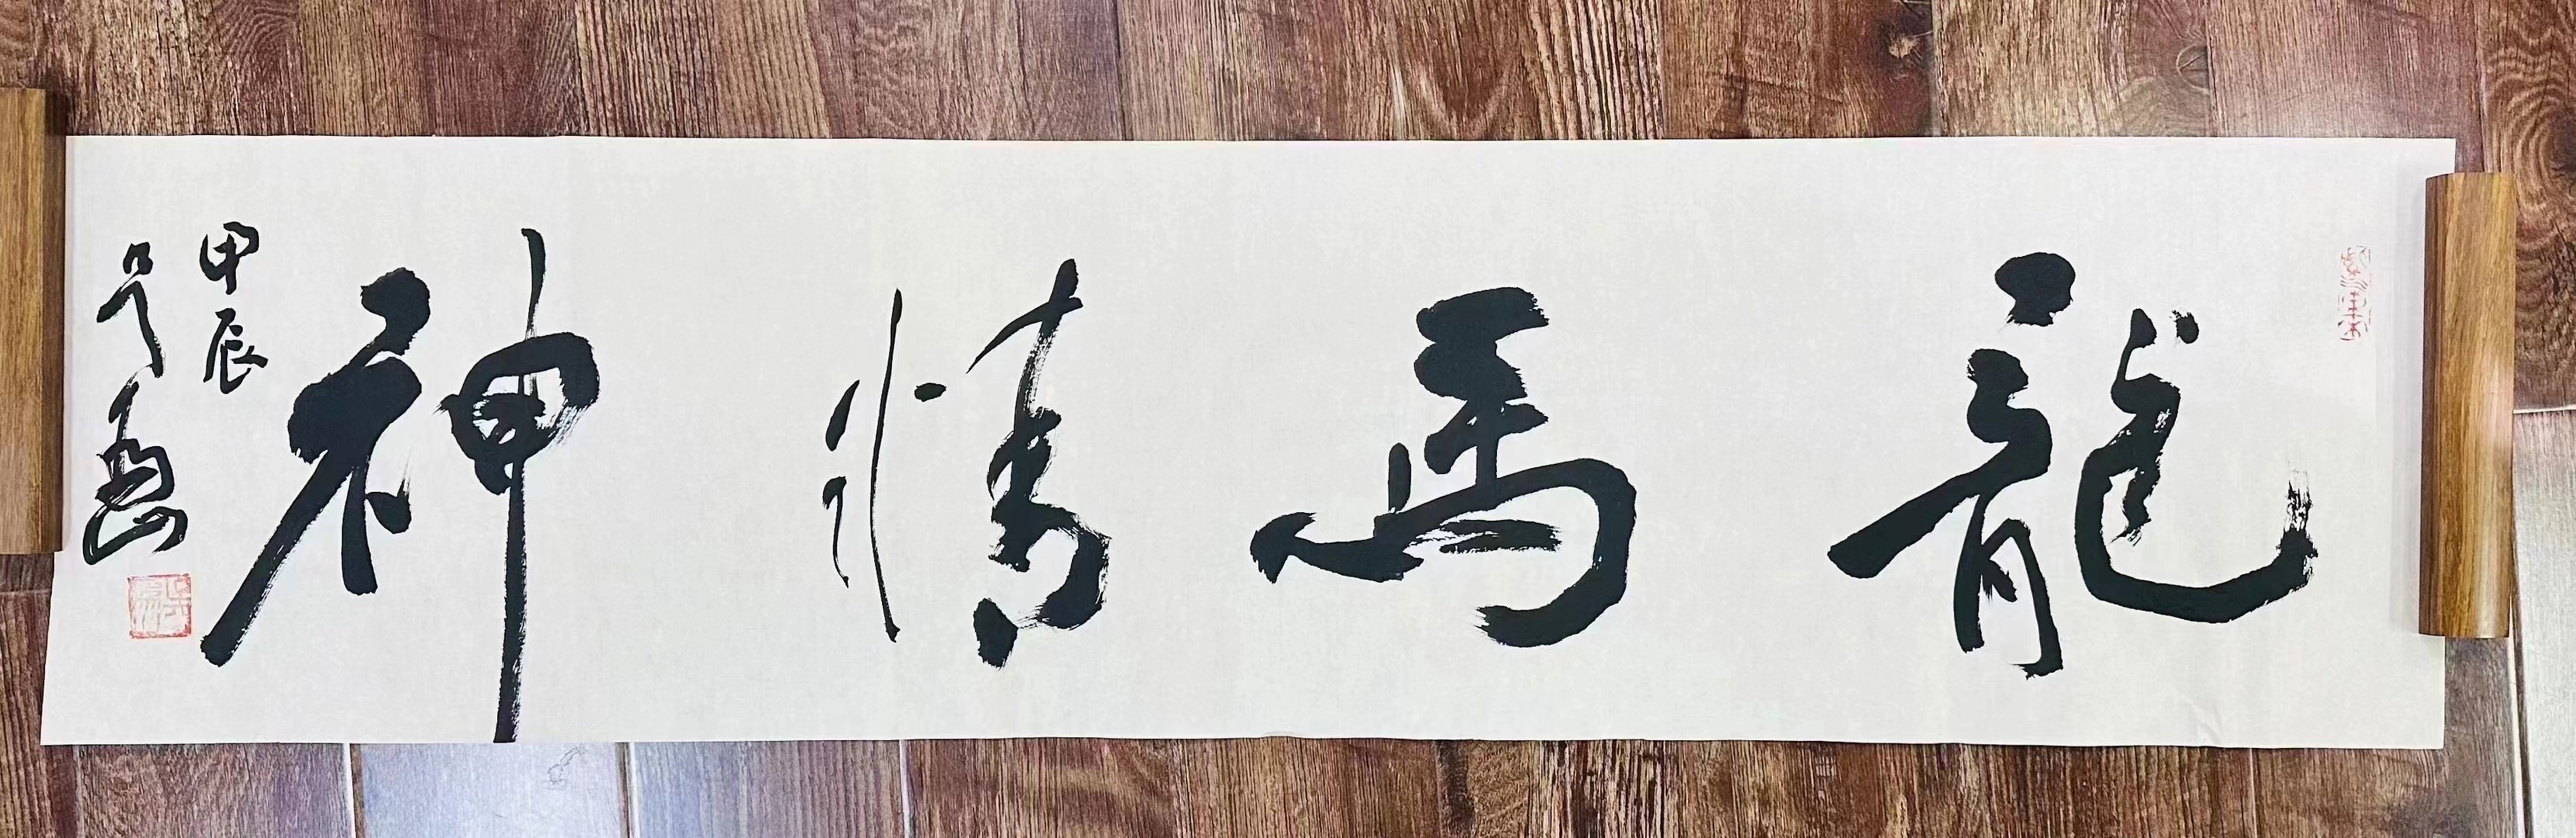 龍馬精神
甲辰